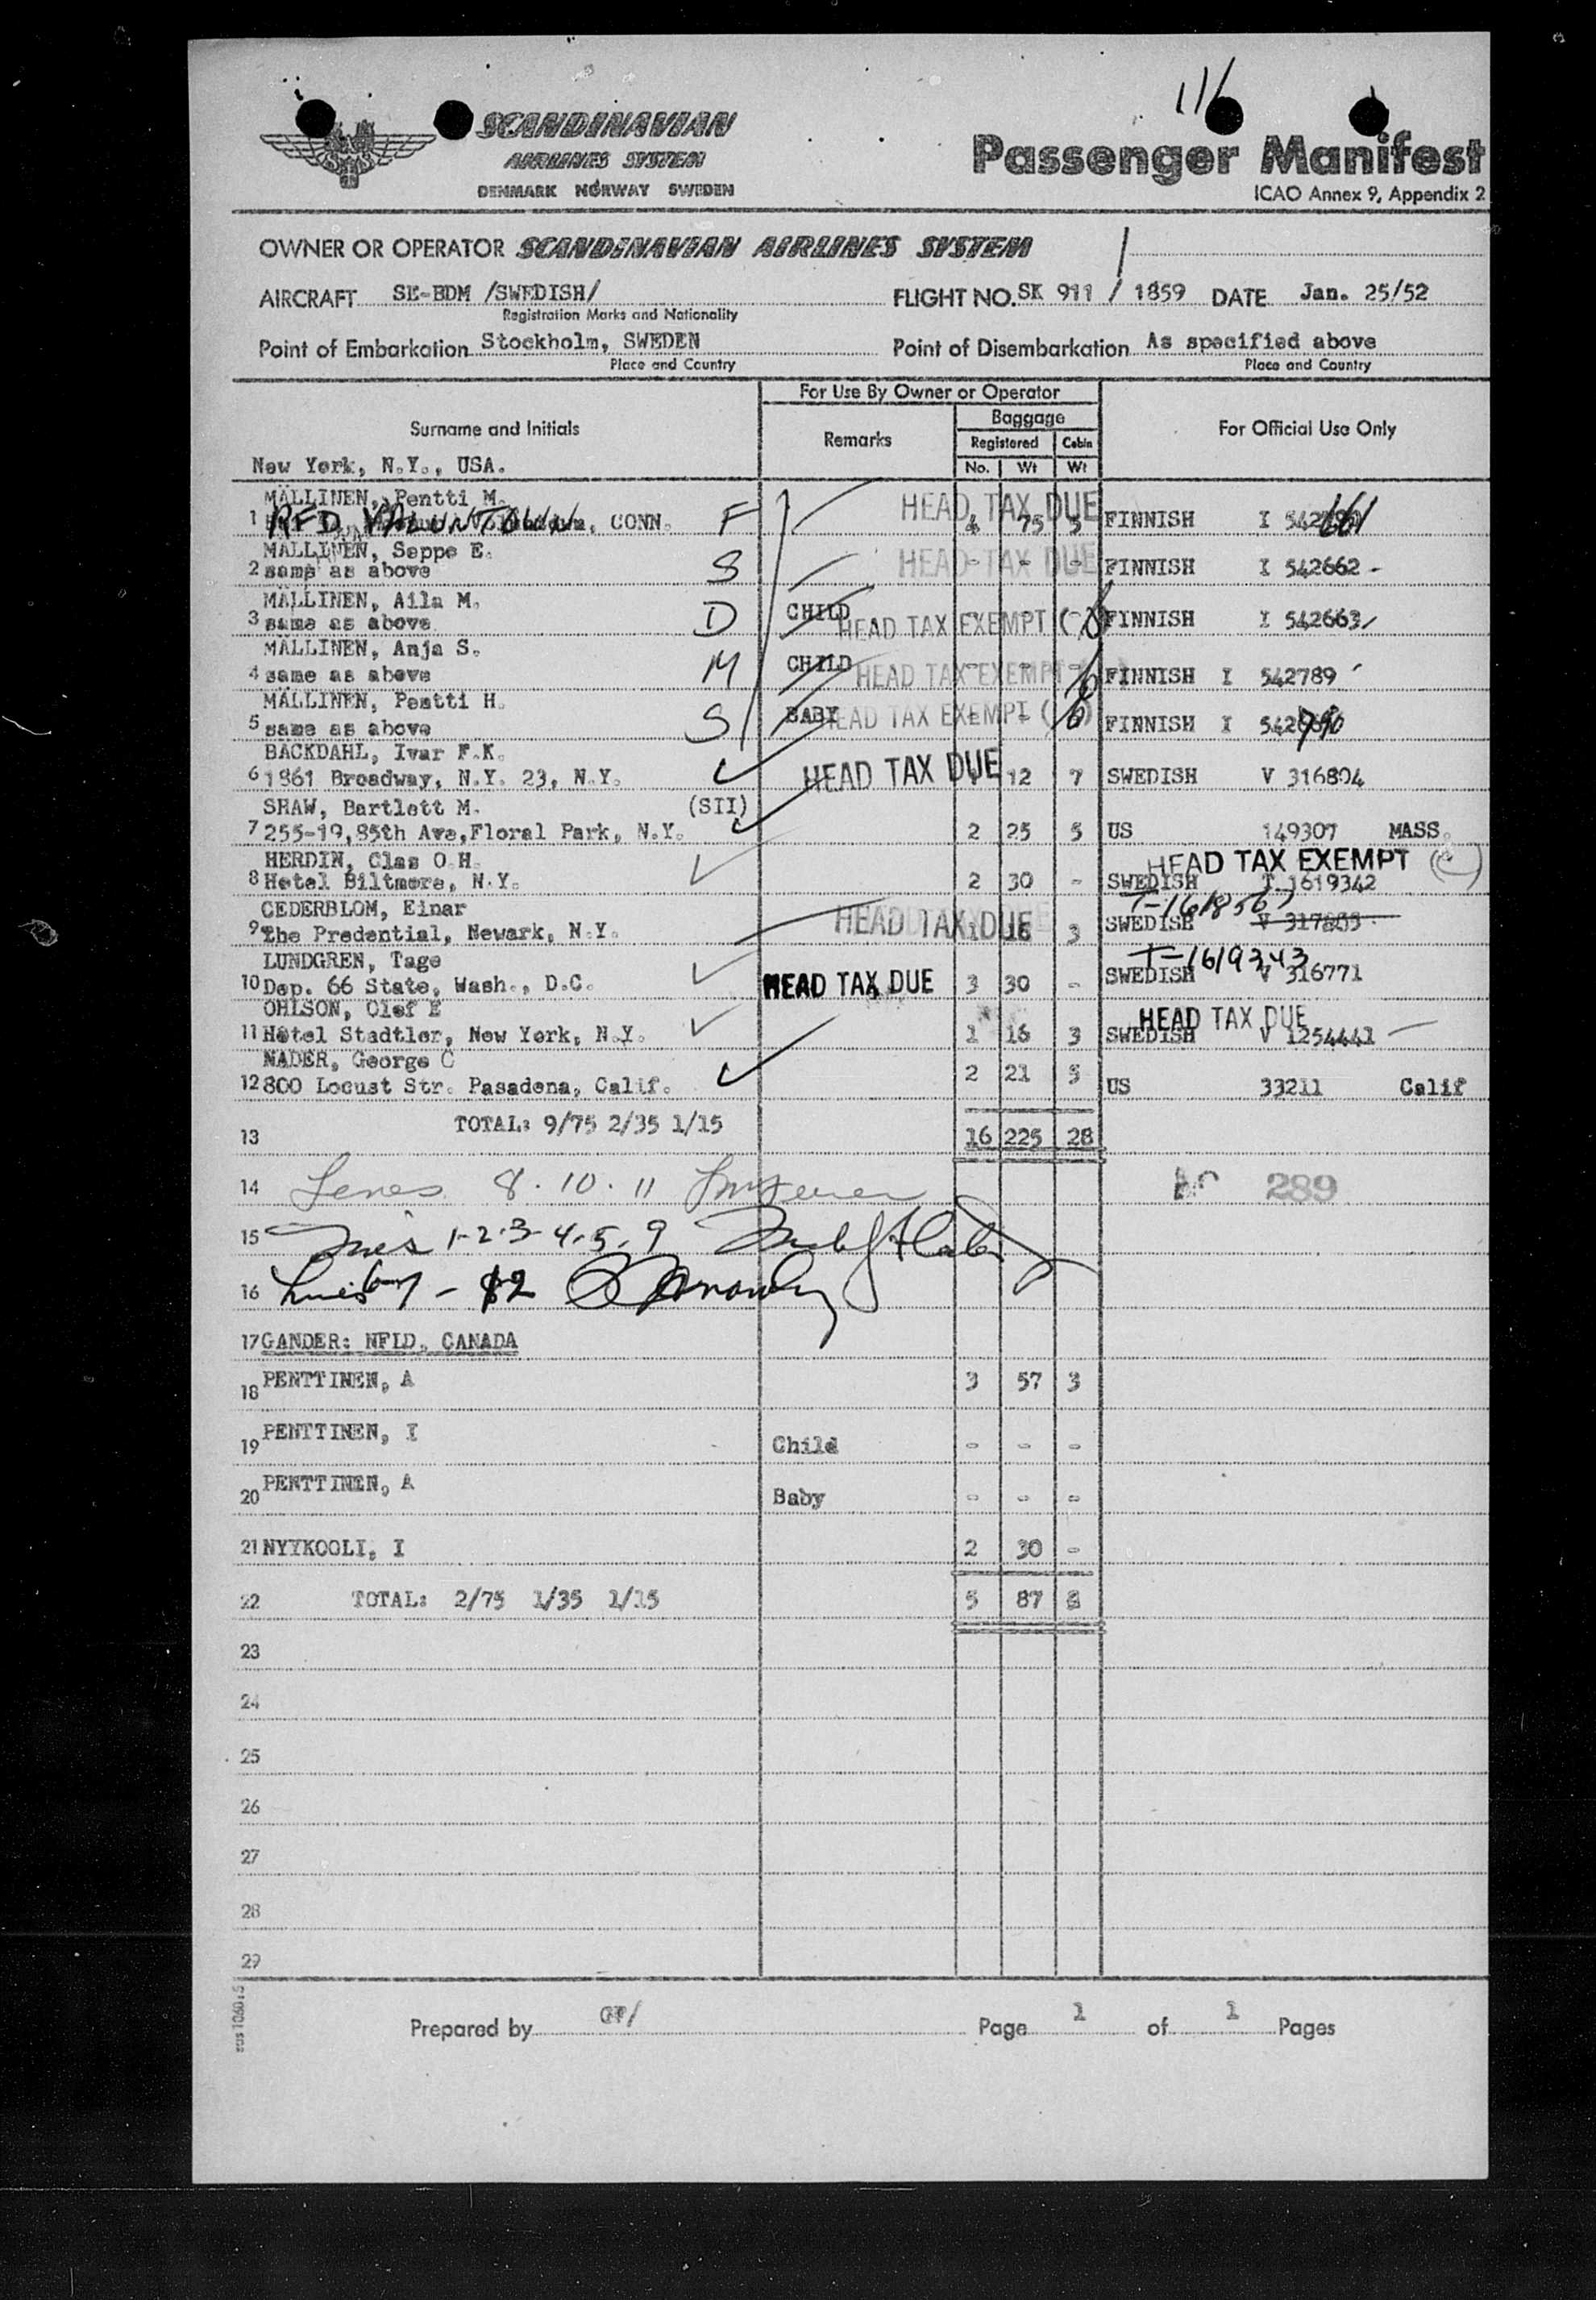 116
SCANDINAVIAN
AIRLINES SYSTEM
DENMARK NORWAY SWEDEN
Passenger Manifest
ICAO Annex 9, Appendix 2
OWNER OR OPERATOR SCANDINAVIAN AIRLINES SYSTEM
AIRCRAFT SE-BDM /SWEDISH/ FLIGHT NO. SK 911 / 1859 DATE Jan. 25/52
Registration Marks and Nationality
Point of Embarkation Stockholm, SWEDEN Point of Disembarkation As specified above
Place and Country Place and Country
For Use By Owner or Operator
Surname and Initials Remarks Baggage For Official Use Only
Registered Cabin
New York, N.Y., USA. No. Wt Wt
MÄLLINEN, Pentti M. HEAD TAX DUE
1 RFD VALUNTOWN, CONN. F 4 75 5 FINNISH I 542661
MÄLLINEN, Seppo E. HEAD TAX DUE
2 same as above S - - - FINNISH I 542662 -
MÄLLINEN, Aila M. CHILD
3 same as above D HEAD TAX EXEMPT FINNISH I 542663
MÄLLINEN, Anja S. CHILD
4 same as above M HEAD TAX EXEMPT FINNISH I 542789
MÄLLINEN, Pentti H. BABY
5 same as above S HEAD TAX EXEMPT FINNISH I 542790
BACKDAHL, Ivar F.K.
6 1861 Broadway, N.Y. 23, N.Y. HEAD TAX DUE 12 7 SWEDISH V 316804
SHAW, Bartlett M. (SII)
7 255-19,85th Ave,Floral Park, N.Y. 2 25 5 US 149307 MASS.
HERDIN, Clas O.H. HEAD TAX EXEMPT (C)
8 Hotel Biltmore, N.Y. 2 30 - SWEDISH T.1619342
CEDERBLOM, Einar HEAD TAX DUE
9 the Predential, Newark, N.Y. 1 16 3 SWEDISH
LUNDGREN, Tage T-1619343
10 Dep. 66 State, Wash., D.C. HEAD TAX DUE 3 30 - SWEDISH V 316771
OHLSON, Olof E HEAD TAX DUE
11 Hotel Stadtler, New York, N.Y. 1 16 3 SWEDISH V 1254441
NADER, George C
12 800 Locust Str. Pasadena, Calif. 2 21 5 US 33211 Calif
13 TOTAL: 9/75 2/35 1/15 16 225 28
14 8. 10. 11 289
15 1-2-3-4-5-9
16
17 GANDER: NFLD, CANADA
18 PENTTINEN, A 3 57 3
19 PENTTINEN, I Child - - -
20 PENTTINEN, A Baby - - -
21 NYYKOOLI, I 2 30 -
22 TOTAL: 2/75 1/35 1/15 5 87 3
23
24
25
26
27
28
29
sas 1060:5
Prepared by GP/ Page 1 of 1 Pages